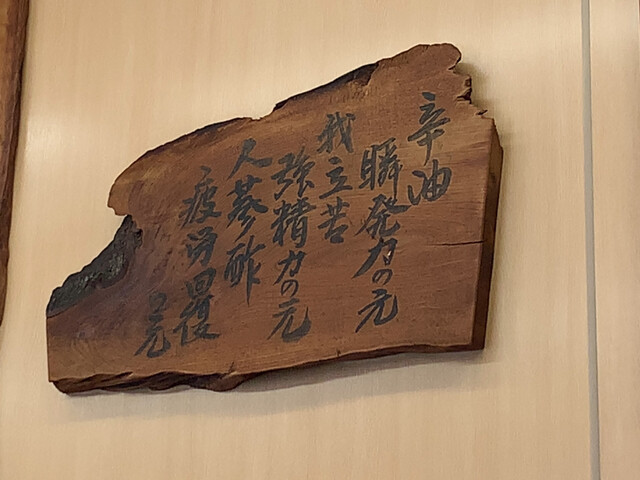 辛油
瞬発力の元
我立苦
強精力の元
人蔘酢
疲労回復
の元